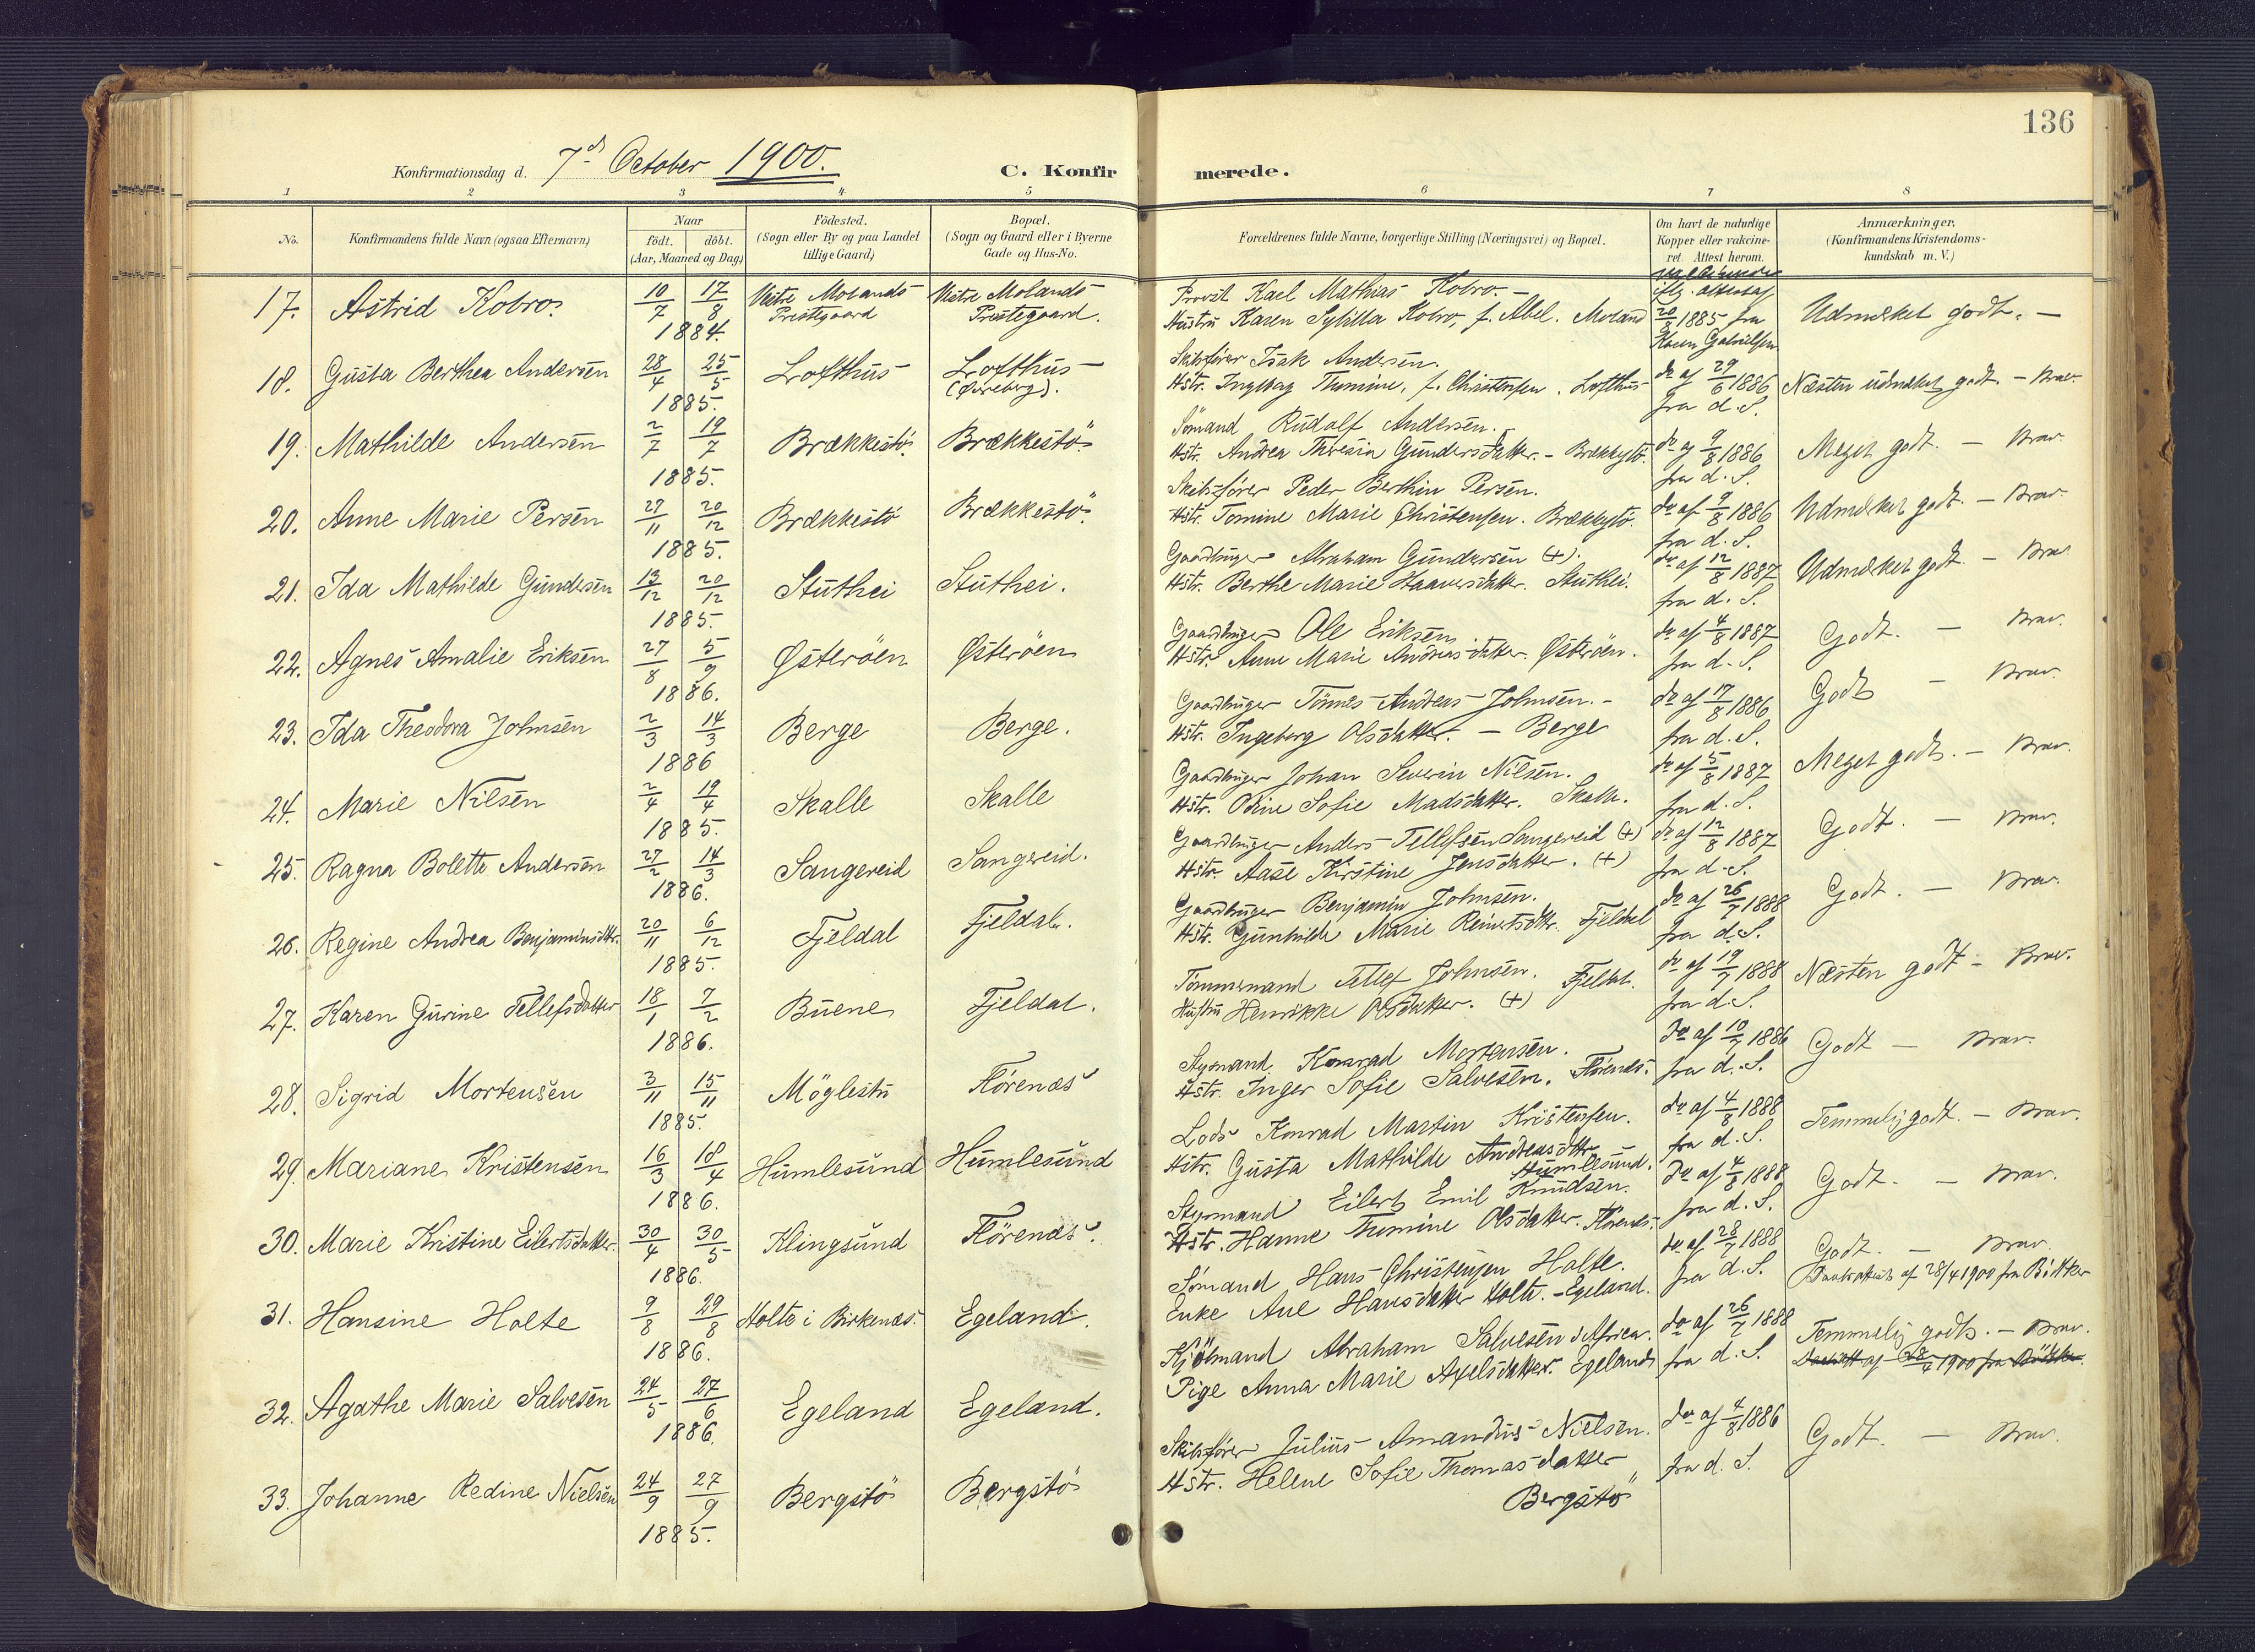 136
Konfirmationsdag d. 7de October 1900.
C. Konfirmerede.
1 2 3 4 5 6 7 8
No.
Konfirmandens fulde Navn (ogsaa Efternavn)
Naar
födt. döbt.
(Aar, Maaned og Dag)
Födested.
(Sogn eller By og paa Landet
tillige Gaard)
Bopæl.
(Sogn og Gaard eller i Byerne
Gade og Hus-No.
Forældrenes fulde Navne, borgerlige Stilling (Næringsvei) og Bopæl.
Om havt de naturlige
Kopper eller vakcine-
ret. Attest herom.
Anmærkninger.
(Konfirmandens Kristendoms-
kundskab m. V.)
17. Astrid Kobro. 10/7 17/8 1884. Vestre Molands Prestegaard Vestre Molands Prestegaard.
Provst Karl Mathias Kobro. –
Hustru Karen Sylilla Kobro, f. Abel. Moland
iflg. Attest af 20/8 1885 fra
Udmerket godt. –
18. Gusta Berthea Andersen 28/4 25/5 1885. Lofthus Lofthus
Skibsfører Isak Andersen.
Hstr. Ingeborg Thomine, f. Christensen. Lofthus
do af 29/6 1886 fra d. S.
Næsten udmerket godt. – Brav.
19. Mathilde Andersen 2/7 19/7 1885. Brækkestö. Brækkestö.
Sömand Rudolf Andersen.
Hstr. Andrea Theresia Gundersdatter. – Brækkestö.
do af 9/8 1886 fra d. S.
Meget godt. – Brav.
20. Anne Marie Persen 27/11 20/12 1885. Brækkestö Brækkestö.
Skibsfører Peder Berthin Persen.
Hstr. Tomine Marie Christensen. Brækkestö.
do af 9/8 1886 fra d. S.
Udmerket godt. – Brav.
21. Ida Mathilde Gundersen 13/12 20/12 1885. Stuthei Stuthei.
Gaardbruger Abraham Gundersen (+).
Hstr. Berthe Marie Haaversdatter. Stuthei.
do af 12/8 1887 fra d. S.
Udmerket godt – Brav.
22. Agnes Amalie Eriksen 27/8 5/9 1886. Østeröen Østeröen
Gaardbruger Ole Eriksen
Hstr. Anne Marie Andreasdatter. Østeröen.
do af 4/8 1887 fra d. S.
Godt. – Brav.
23. Ida Theodora Johnsen 2/3 14/3 1886 Berge Berge.
Gaardbruger Tönnes Andreas Johnsen. –
Hstr. Ingeborg Olsdatter. – Berge
do af 17/8 1886 fra d. S.
Godt – Brav.
24. Marie Nilsen 2/4 19/4 1885. Skalle Skalle
Gaardbruger Johan Severin Nilsen.
Hstr. Odine Sofie Madsdatter. Skalle.
do af 5/8 1887 fra d. S.
Meget godt. – Brav.
25. Ragna Bolette Andersen 27/2 14/3 1886. Sangereid Sangereid.
Gaardbruger Anders Tellefsen Sangereid (+)
Hstr. Aase Kirstine Jensdatter. (+)
do af 12/8 1887 fra d. S.
Godt. – Brav.
26. Regine Andrea Benjaminsdtr. 20/11 6/12 1885. Fjeldal Fjeldal.
Gaardbruger Benjamin Johnsen.
Hstr. Gunhilde Marie Reinertsdtr. Fjeldal
do af 26/7 1888 fra d. S.
Godt. – Brav.
27. Karen Gurine Tellefsdatter 18/1 7/2 1886. Buene Fjeldal.
Tømmermand Tellef Johnsen. Fjeldal.
Hustru Henrikke Olsdatter. (+)
do af 19/7 1888 fra d. S.
Næsten godt – Brav.
28. Sigrid Mortensen 3/11 15/11 1885. Möglestu Flörenæs
Styrmand Konrad Mortensen.
Hstr. Inger Sofie Salvesen. Flörenæs.
do af 10/7 1886 fra d. S.
Godt – Brav.
29. Mariane Kristensen 16/3 18/4 1886. Humlesund Humlesund
Lods Konrad Martin Kristensen.
Hstr. Gusta Mathilde Andreasdtr. Humlesund.
do af 4/8 1888 fra d. S.
Temmelig godt. – Brav.
30. Marie Kristine Eilertsdatter. 30/4 30/5 1886. Klingsund Flörenæs.
Styrmand Eilert Emil Knudsen.
Hstr. Hanne Thomine Olsdatter. Flörenæs.
do af 4/8 1888 fra d. S.
Godt. – Brav.
31. Hansine Holte 9/8 29/8 1886. Holte i Birkenæs. Egeland.
Sømand Hans Christensen Holte.
Enke Ane Hansdatter Holte. – Egeland.
do af 28/7 1888 fra d. S.
Godt. – Brav.
af 28/4 1900 fra
32. Agathe Marie Salvesen 24/5 27/6 1886. Egeland Egeland.
Abraham Salvesen i Africa.
Pige Anna Marie Axelsdatter. Egeland
do af 26/7 1888 fra d. S.
Temmelig godt. – Brav.
af 28/4 1900 fra
33. Johanne Redine Nielsen 24/9 27/9 1885. Bergstö Bergstö
Skibsfører Julius Amandus Nielsen.
Hstr. Helene Sofie Thomasdatter
Bergstö
do af 4/8 1886 fra d. S.
Godt. – Brav.